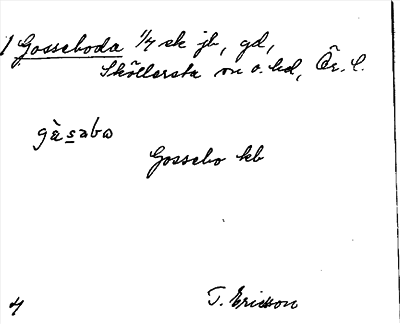 Gosseboda 1/4 sk jb, gd,
Sköllersta sn o. hd, Ör. l.
gåsabo
Gossebo kb
4
T. Ericsson